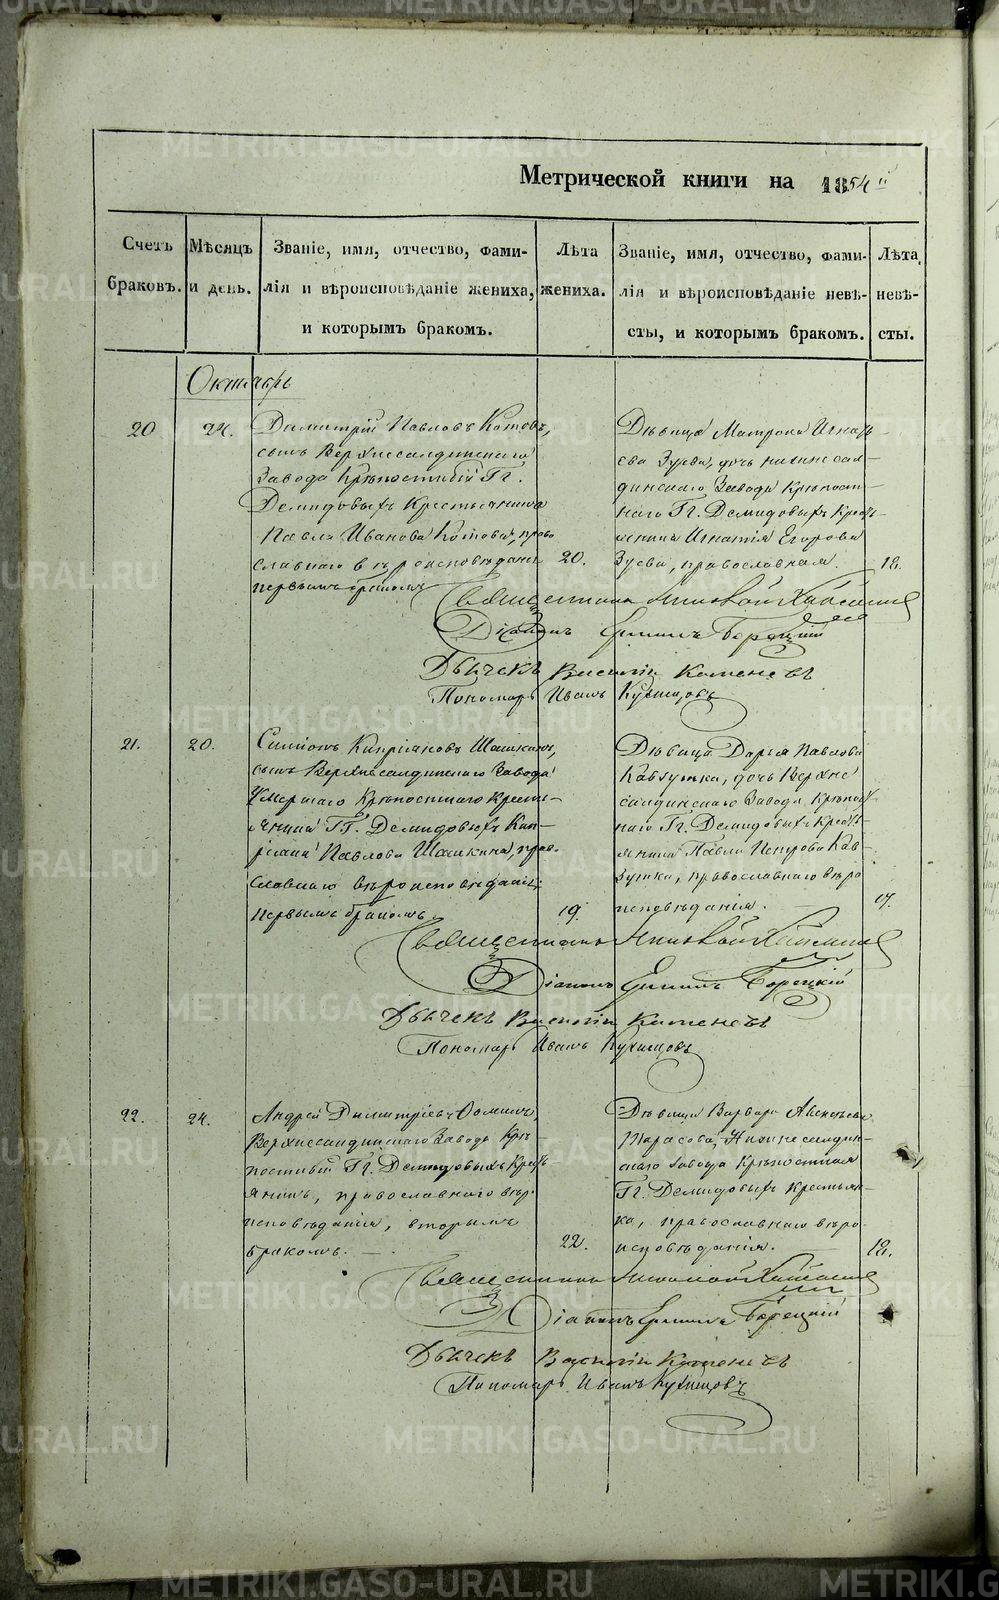 Метрической книги на 1854й
Счетъ браковъ.
Мѣсяцъ и день.
Званіе, имя, отчество, фами-
лія и вѣроисповѣданіе жениха,
и которымъ бракомъ.
Лѣта жениха.
Званіе, имя, отчество, фами-
лія и вѣроисповѣданіе невѣ-
сты, и которымъ бракомъ.
Лѣта невѣ-
сты.
Октябрь
20
24.
Димитрій Павловъ Котовъ,
сынъ Верхнесалдинскаго
Завода Крѣпостный Гг.
Демидовыхъ Крестьянина
Павла Иванова Котова, право
славнаго вѣроисповѣданія
первымъ бракомъ
20.
Дѣвица Матрона Игнать-
ева Зуева, дочь нижнесал-
динскаго Завода Крѣпост-
наго Гг. Демидовыхъ Кресть-
янина Игнатія Егорова
Зуева, православная.
18.
Священникъ
Діаконъ
Дьячекъ Василій Каменевъ
Пономарь Иванъ Кузнецовъ
21.
20.
Симіонъ Кипріяновъ Шашкинъ,
сынъ Верхнесалдинскаго Завода
Умершаго Крѣпостнаго Кресть-
янина Гг. Демидовыхъ Кип-
ріана Павлова Шашкина, прав-
славнаго вѣроисповѣданія
первымъ бракомъ
19.
Дѣвица Дарья Павлова
дочь Верхне
салдинскаго Завода Крѣпост-
наго Гг. Демидовыхъ Кресть-
янина Павла Петрова Кав-
православнаго вѣро
исповѣданія.
17.
Священникъ
Діаконъ
Дьячекъ Василій Каменевъ
Пономарь Иванъ Кузнецовъ
22.
24.
Андрей Димитріевъ Ѳоминъ,
Верхнесалдинскаго Завода Крѣ-
постный Гг. Демидовыхъ Кресть
янинъ, православнаго вѣро
исповѣданія, вторымъ
бракомъ.
22.
Дѣвица Варвара
Тарасова, Нижнесалдин-
скаго завода Крѣпостная
Гг. Демидовыхъ Крестьян-
ка, православнаго вѣро-
исповѣданія.
18.
Священникъ
Діаконъ
Дьячекъ Василій Каменевъ
Пономарь Иванъ Кузнецовъ
METRIKI.GASO-URAL.RU